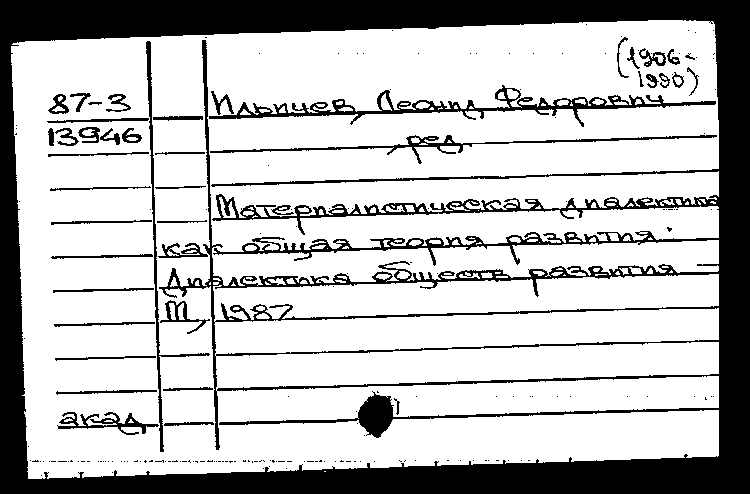 (1906-
1990)
87-3 Ильичев, Леонид Федорович
13946 , ред.
Материалистическая диалектика
как общая теория развития.
Диалектика обществ развития –
М, 1987
акад,